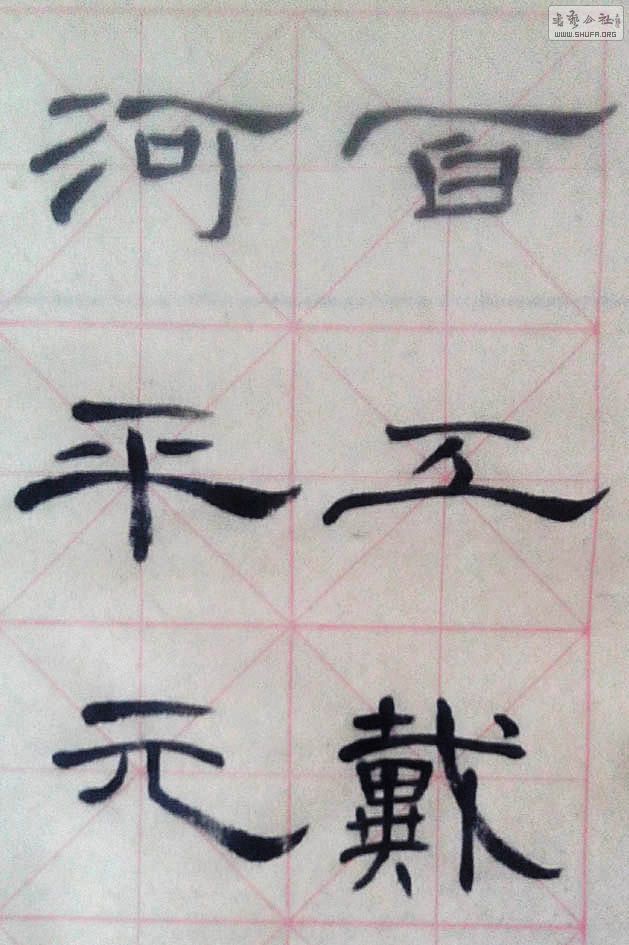 百工戴
河平元
WWW.SHUFA.ORG